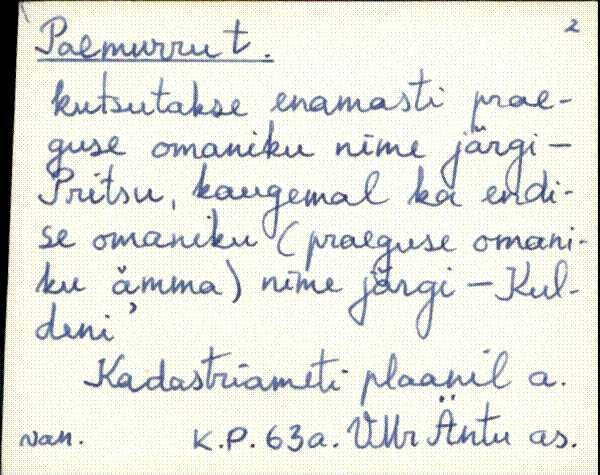 2
Paemurru t.
kutsutakse enamasti prae-
guse omaniku nime järgi –
Pritsu, kaugemal ka endi-
se omaniku (praeguse omani-
ku ämma) nime järgi – Kul-
deni
Kadastriameti plaanil a.
van. K.P. 63a. VMr Äntu as.